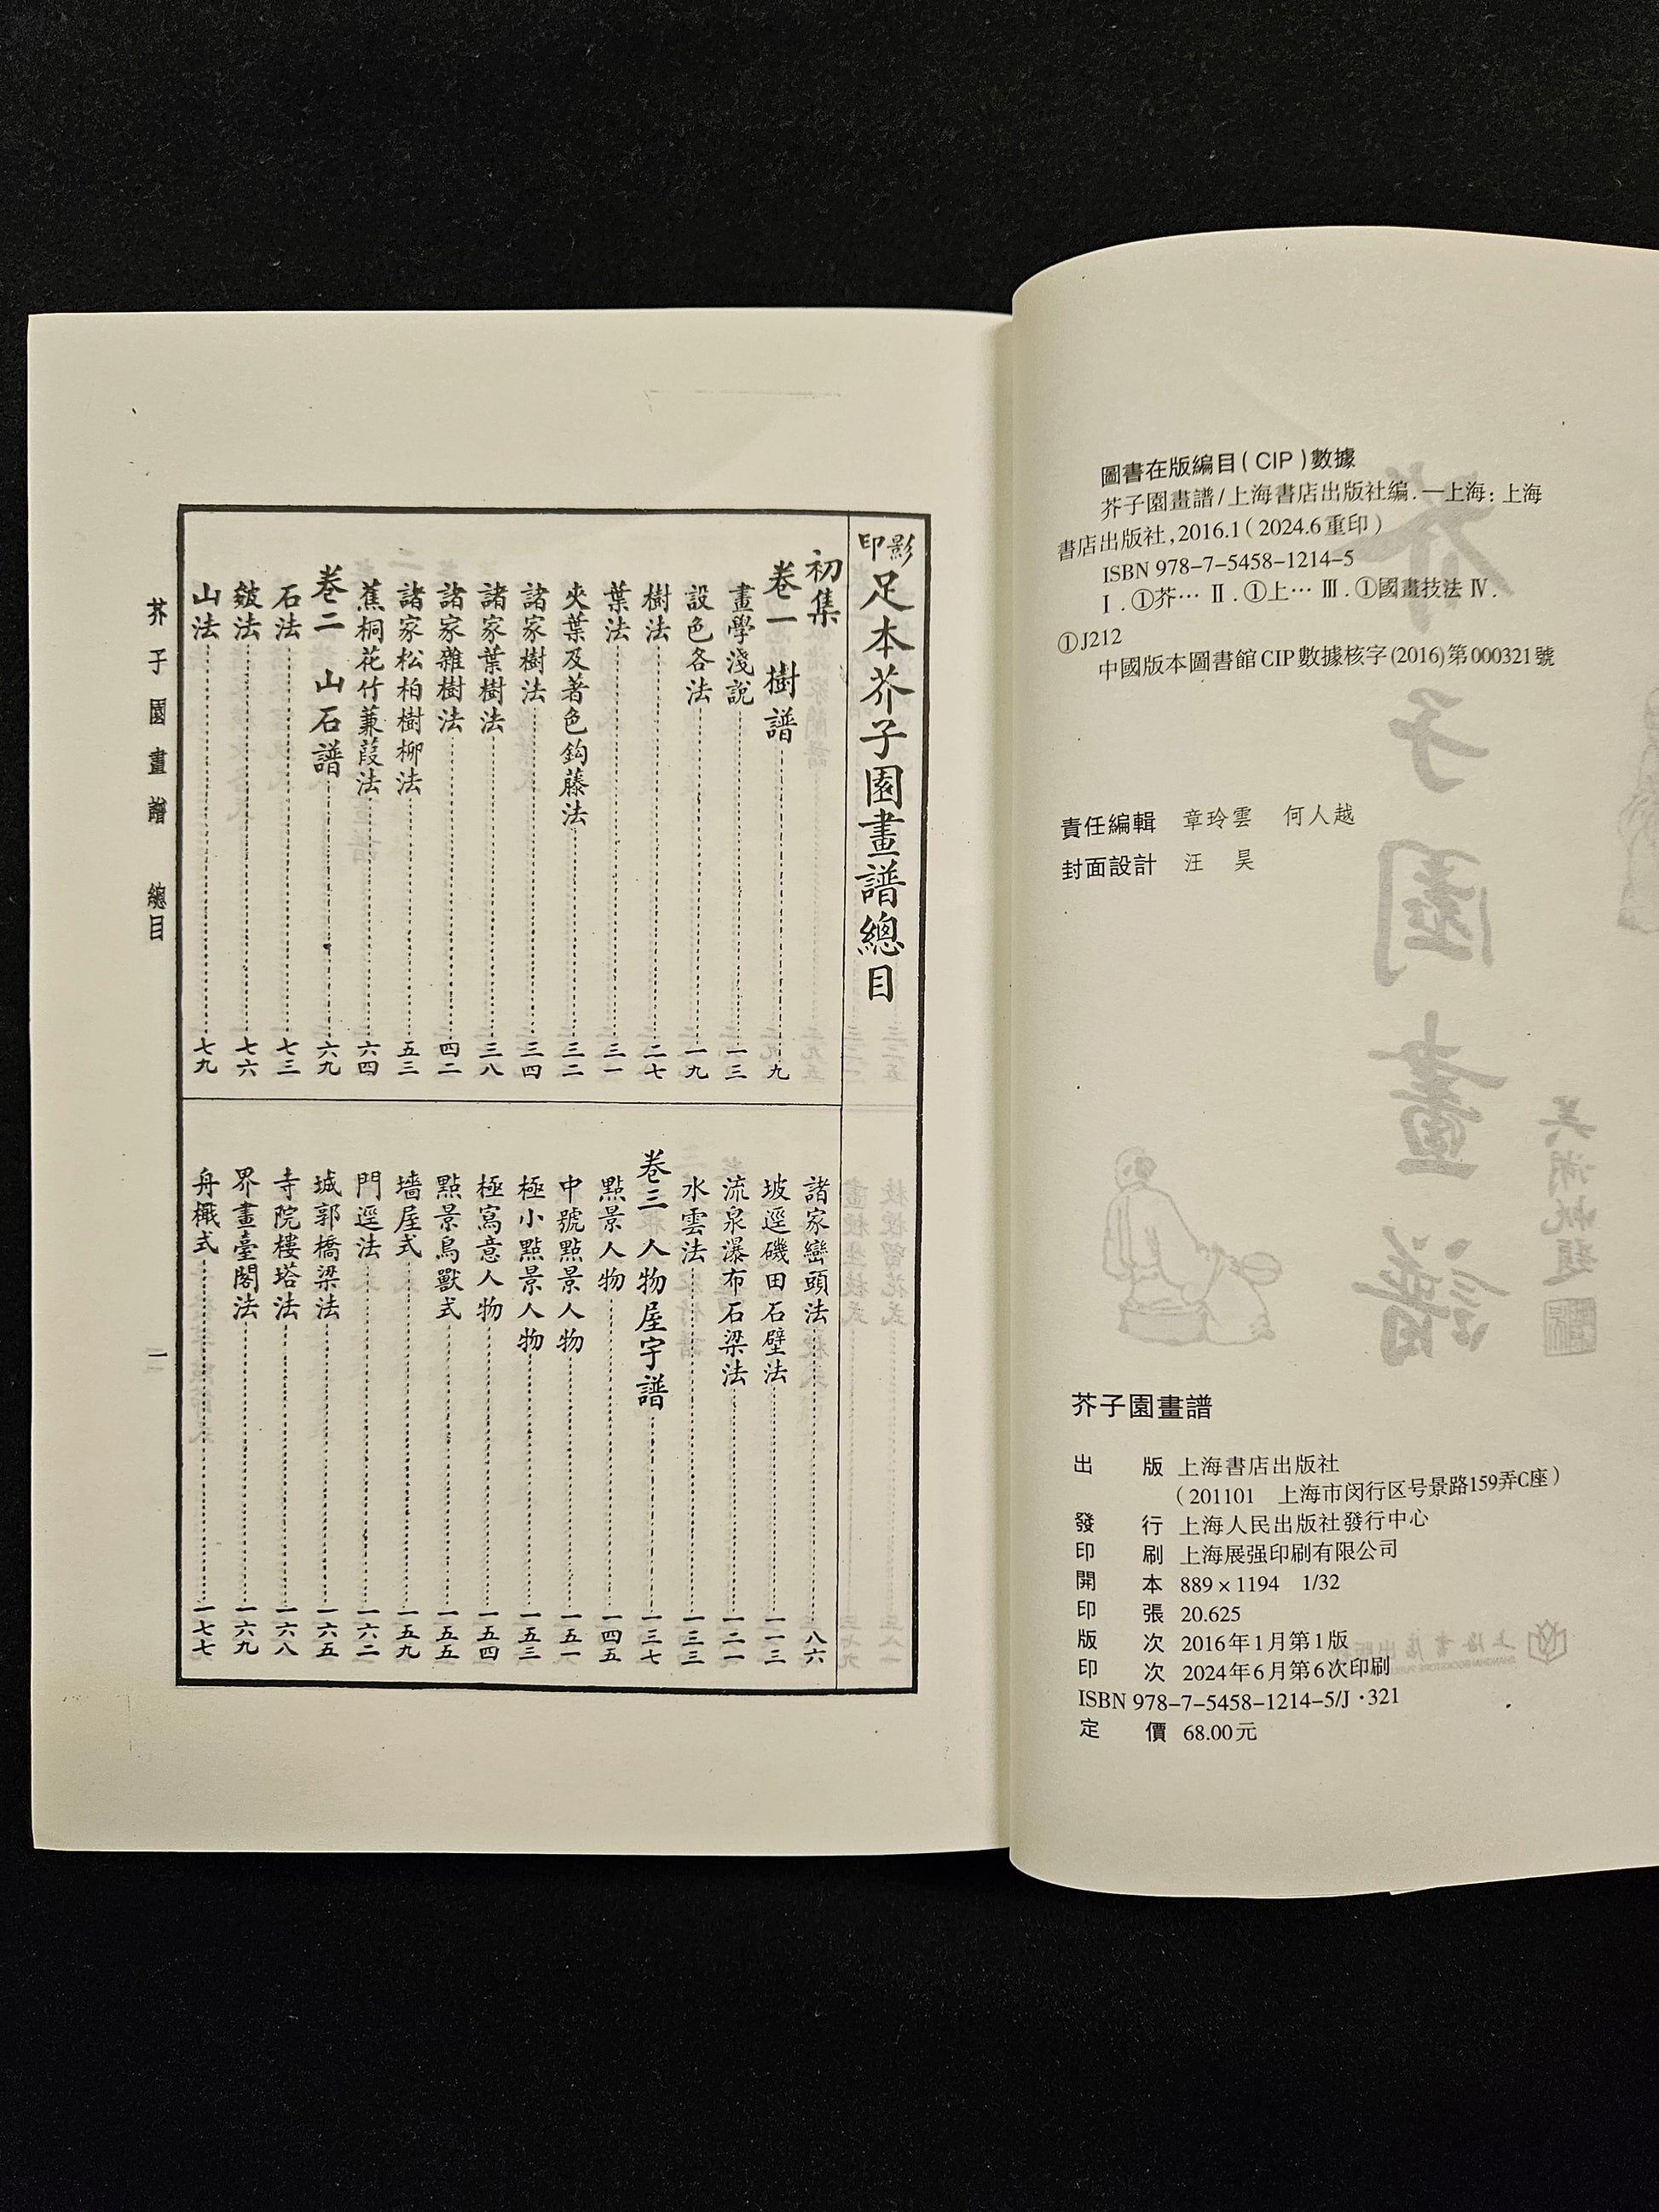 影印足本芥子園畫譜總目
初集
卷一 樹譜 九
畫學淺說 一三
設色各法 一九
樹法 二七
葉法 三一
夾葉及著色鈎藤法 三二
諸家樹法 三四
諸家葉樹法 三八
諸家雜樹法 四二
諸家松柏樹柳法 五三
蕉桐花竹蒹葭法 六四
卷二 山石譜 六九
石法 七三
皴法 七六
山法 七九
諸家巒頭法 八六
坡逕磯田石壁法 一一三
流泉瀑布石梁法 一二一
水雲法 一三三
卷三 人物屋宇譜 一三七
點景人物 一四五
中號點景人物 一五一
極小點景人物 一五三
極寫意人物 一五四
點景鳥獸式 一五五
墻屋式 一五九
門逕法 一六二
城郭橋梁法 一六五
寺院樓塔法 一六八
界畫臺閣法 一六九
舟檝式 一七七
芥子園畫譜 總目
一
圖書在版編目(CIP)數據
芥子園畫譜/上海書店出版社編.—上海:上海
書店出版社,2016.1(2024.6重印)
ISBN 978-7-5458-1214-5
Ⅰ.①芥… Ⅱ.①上… Ⅲ.①國畫技法 Ⅳ.
①J212
中國版本圖書館CIP數據核字(2016)第000321號
責任編輯 章玲雲 何人越
封面設計 汪 昊
芥子園畫譜
出 版 上海書店出版社
(201101 上海市闵行区号景路159弄C座)
發 行 上海人民出版社發行中心
印 刷 上海展强印刷有限公司
開 本 889×1194 1/32
印 張 20.625
版 次 2016年1月第1版
印 次 2024年6月第6次印刷
ISBN 978-7-5458-1214-5/J·321
定 價 68.00元